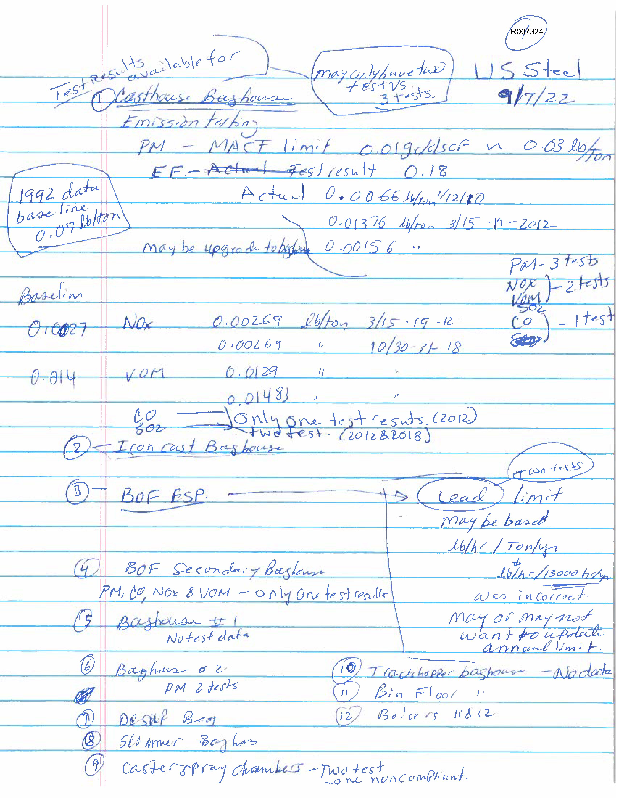 US Steel
9/7/22
Test results available for
may only have two
test vs
3 tests.
① Casthouse Baghouse
Emission testing
PM - MACT limit 0.01gr/dscf ~ 0.03 lb/ton
EF - Actual Test result 0.18
1992 data
base line
0.07 lb/ton
Actual 0.0066 lb/ton
0.01376 lb/ton 3/15 -19-2012
may be upgrade to 0.00156 "
PM - 3 tests
NOx
VOM - 2 tests
SO2
CO - 1 test
Baseline
NOx 0.00269 lb/ton 3/15-19-12
0.00269 " 10/30-31-18
0.014 VOM 0.0129 "
0.01483 "
CO Only one test resuts. (2012)
SO2 two test - (2012&2018)
② Iron cast Baghouse
③ BOF ESP.
Two tests
Lead limit
may be based
lb/hr / Ton/yr
was incorrect
may or may not
want to update
annual limit.
④ BOF Secondary Baghouse
PM, CO, NOx & VOM - only one test results
⑤ Baghouse # 1
No test data
⑥ Baghouse # 2
PM 2 tests
⑦ DESULF Bag
⑧ Skimmer Baghous
⑨ Caster spray chambers - Two test
- one noncompliant.
⑩ Trackhopper baghouse - No data
⑪ Bin Floor "
⑫ Boilers 11 & 12